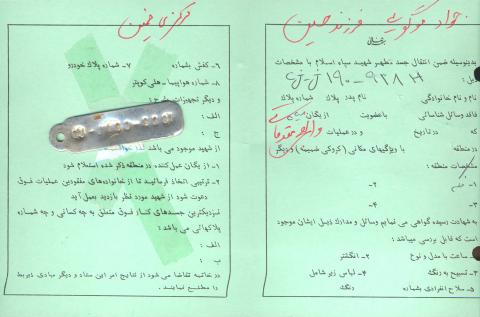 جواد گوگویی فرزند حسین
بدینوسیله ضمن انتقال جسد مطهر شهید سپاه اسلام با مشخصات
ذیل:
نام و نام خانوادگی نام پدر پلاک شماره پلاک
فاقد وسائل شناسائی باعضویت از یگان
که در تاریخ و در عملیات
منطقه با ویژگیهای مکانی (کروکی ضمیمه) و دیگر
مشخصات منطقه:
۱- ۲-
۳- ۴-
به شهادت رسیده گواهی می نمایم وسائل و مدارک ذیل ایشان موجود
است که قابل بررسی میباشد:
۱- ساعت با مدل و نوع ۲- انگشتر
۳- تسبیح به رنگ ۴- لباس زیر شامل
۵- سلاح انفرادی بشماره رنگ
۶- کفش بشماره ۷- شماره پلاک خودرو
۸- شماره هواپیما- هلی کوپتر
و دیگر تجهیزات
الف:
ج:
از شهید موجود می باشد
۱- از یگان عمل کننده در منطقه ذکر شده استعلام شود
۲- ترتیبی اتخاذ فرمائید تا از خانواده‌های مفقودین عملیات فوق
دعوت شود از شهید مورد نظر بازدید بعمل آید
نزدیکترین جسدهای کنار فوق متعلق به چه کسانی و چه شماره
پلاکهائی می باشد:
الف:
ب:
در خاتمه تقاضا می شود از نتایج امر این ستاد و دیگر مبادی ذیربط
را مطلع نمایند.